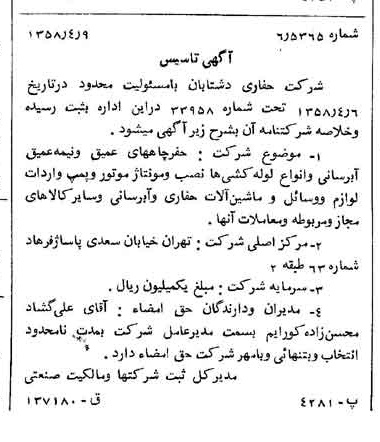 شماره ۶/۵۳۶۵ ۱۳۵۸/۴/۹
آگهی تاسیس
شرکت حفاری دشتابان بامسئولیت محدود درتاریخ
۱۳۵۸/۴/۶ تحت شماره ۳۳۹۵۸ دراین اداره بثبت رسیده
وخلاصه شرکتنامه آن بشرح زیرآگهی میشود .
۱- موضوع شرکت : حفرچاههای عمیق ونیمه‌عمیق
آبرسانی وانواع لوله‌کشی‌ها نصب ومونتاژ موتور وپمپ واردات
لوازم ووسائل و ماشین‌آلات حفاری وآبرسانی وسایرکالاهای
مجاز ومربوطه ومعاملات آنها .
۲- مرکز اصلی شرکت : تهران خیابان سعدی پاساژفرهاد
شماره ۶۳ طبقه ۲
۳- سرمایه شرکت : مبلغ یکمیلیون ریال .
۴- مدیران ودارندگان حق امضاء : آقای علی‌گشاد
محسن‌زاده کورایم بسمت مدیرعامل شرکت بمدت نامحدود
انتخاب وبتنهائی وبامهر شرکت حق امضاء دارد .
مدیرکل ثبت شرکتها ومالکیت صنعتی
پ-۴۲۸۱ ق-۱۳۷۱۸۰